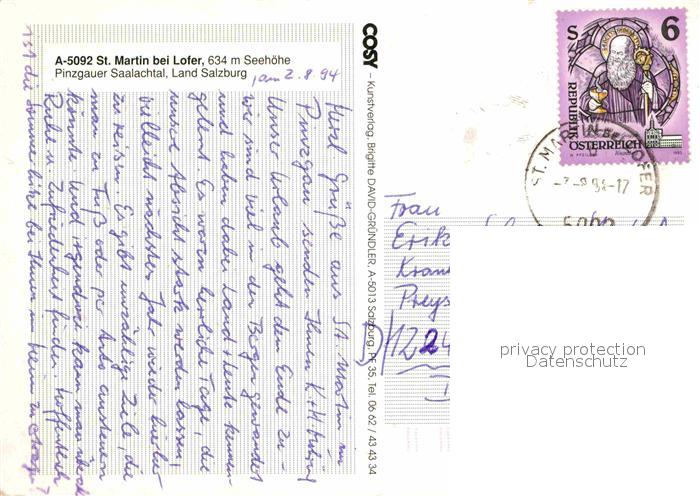 A-5092 St. Martin bei Lofer, 634 m Seehöhe
Pinzgauer Saalachtal, Land Salzburg
, am 2.8.94
Herzl. Grüße aus St. Martin im
Pinzgau senden Ihnen K.+H.
Unser Urlaub geht dem Ende zu -
wir sind viel in den Bergen gewandert
und haben dabei Land + Leute kennen-
gelernt. Es waren herrliche Tage, die
unsere Absicht stark werden lassen,
vielleicht nächstes Jahr wieder hierher
zu reisen. Es gibt unzählige Ziele, die
man zu Fuß oder per Auto ansteuern
könnte. Und irgendwo kann man auch
Ruhe u. Zufriedenheit finden. Hoffentlich
ist die Sommerhitze bei Ihnen im Heim zu ertragen?
COSY – Kunstverlag, Brigitte DAVID-GRÜNDLER, A-5013 Salzburg, PF 35, Tel. 06 62 / 43 43 34
S 6
REPUBLIK
ÖSTERREICH
ST. MARTIN BEI LOFER
-2.-8.94-17
5092
Frau
Erik
Kran
Preys
D/1224
privacy protection
Datenschutz